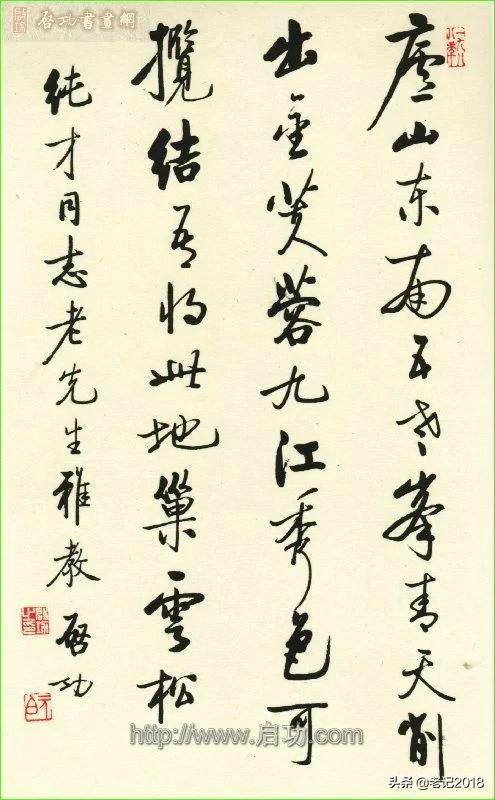 启功書畫網
廬山东南五老峯青天削
出金芙蓉九江秀色可
攬結吾将此地巢雲松
纯才同志老先生雅教 启功
http://www.启功.com
头条 @老记2018